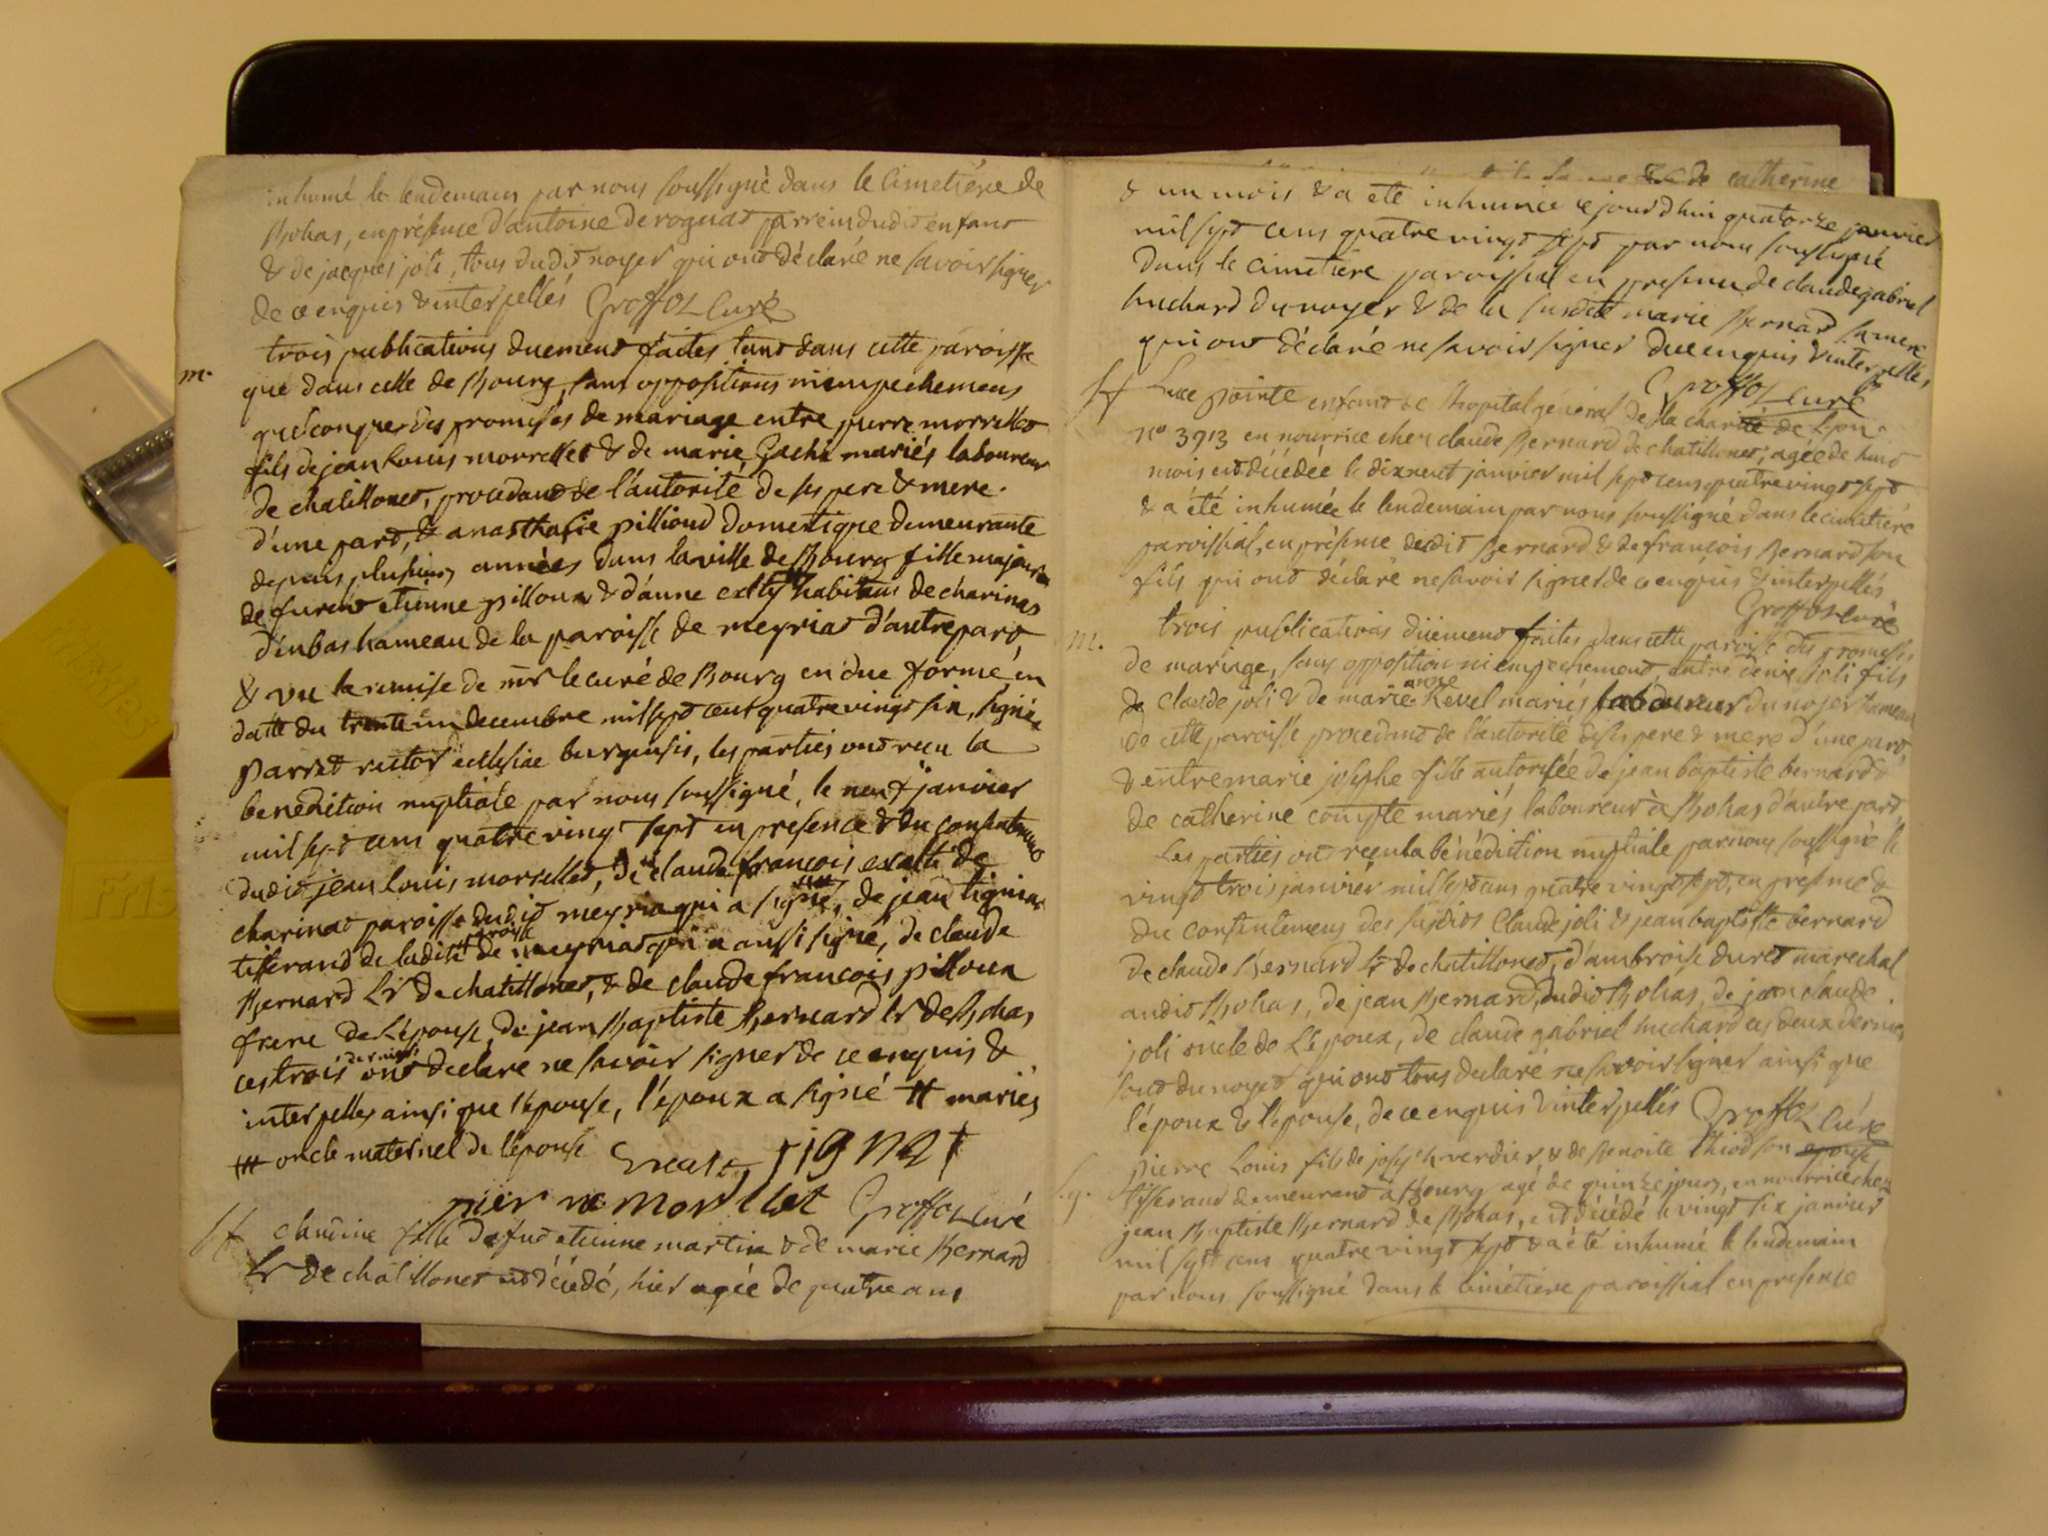 inhumé le lendemain par nous soussigné dans le cimetiére de
Bohas, en présence d'antoine derognat parrein dudit enfant
& de jacques joli, tous dudit noyer qui ont déclaré ne savoir signer
de ce enquis & interpellés Groffoz curé
m.
trois publications duement faites tant dans cette paroisse
que dans celle de Bourg, sans oppositions ni empechemens
quelconques des promesses de mariage entre pierre morrellet
fils de jean Louis morrellet & de marie Gache mariés laboureur
de chatillonet, procedant de l'autorité de ses pere & mere
d'une part, & anasthasie pillioud domestique demeurante
depuis plusieurs années dans la ville de Bourg fille majeure
de furent etienne pilloux & d'anne habitans de charinas
d'enbas hameau de la paroisse de meyriat d'autre part,
& vu la remise de mr le curé de Bourg en due forme en
datte du trente un decembre mil sept cent quatre vingt six, signée
parret rector ecclesiae burgensis, les parties ont reçu la
benediction nuptiale par nous soussigné, le neuf janvier
mil sept cens quatre vingt sept en presence & du consentement
dudit jean louis morrellet, de claude francois de
charinat paroisse dudit meyriat qui a signé, ## de jean tignat
tisserand de ladite paroisse de meyriat qui a aussi signé, de claude
Bernard Lr de chatillonet, & de claude francois pilloux
frere de L'épouse, de jean Baptiste Bernard Lr de Bohas
ces trois derniers ont déclaré ne savoir signer de ce enquis &
interpellés ainsi que l'épouse, l'époux a signé # mariés
## oncle maternel de l'épouse
pier re morellet Groffoz curé
claudine fille de fut etienne martin & de marie Bernard
Lr de chatillonet est décédé, hier agée de quatre ans
de catherine
& un mois & a été inhumée ce jourd'hui quatorze janvier
mil sept cens quatre vingt sept par nous soussigné
dans le cimetiere paroissial en presence de claude gabriel
buchard du noyer & de la susdite marie Bernard sa mere
qui ont déclaré ne savoir signer de ce enquis & interpellés,
Groffoz curé
Luce pointe enfant de l'hopital général de la charité de Lyon
no 3913 en nourrice chez claude Bernard de chatillonet, agée de huit
mois est décédée le dixneuf janvier mil sept cens quatre vingt sept
& a été inhumée le lendemain par nous soussigné dans le cimetiére
paroissial, en présence dudit Bernard & de françois Bernard son
fils qui ont déclaré ne savoir signer de ce enquis & interpellés.
Groffoz curé
m.
trois publications düement faites dans cette paroisse des promesses
de mariage, sans opposition ni empechement, entre denis joli fils
de claude joli & de marie anne Revel mariés laboureur du noyer hameau
de cette paroisse procedant de l'autorité de ses pere & mere d'une part
& entre marie josephe fille autorisée de jean baptiste bernard &
de catherine compte mariés laboureur à Bohas d'autre part,
Les parties ont reçu la bénédiction nuptiale par nous soussigné le
vingt trois janvier mil sept cens quatre vingt sept, en presence &
du consentement des susdits Claude joli & jean baptiste bernard
de claude Bernard Lr de chatillonet, d'ambroise duret marechal
audit Bohas, de jean Bernard dudit Bohas, de jean claude
joli oncle de L'époux, de claude gabriel buchard ces deux derniers
sont du noyer qui ont tous declaré ne savoir signer ainsi que
l'époux & l'épouse, de ce enquis & interpellés Groffoz curé
pierre Louis fils de joseph verdier & de Benoite Thiod son epouse
tisserand demeurant à Bourg agé de quinze jours, en nourrice chez
jean Baptiste Bernard de Bohas, est décédé le vingt six janvier
mil sept cens quatre vingt sept & a été inhumé le lendemain
par nous soussigné dans le cimétiere paroissial en presence